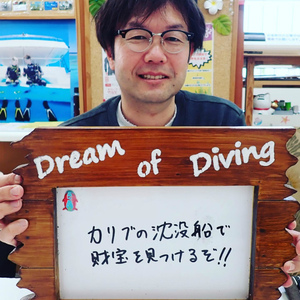 Dream of Diving
カリブの沈没船で
財宝を見つけるぞ!!